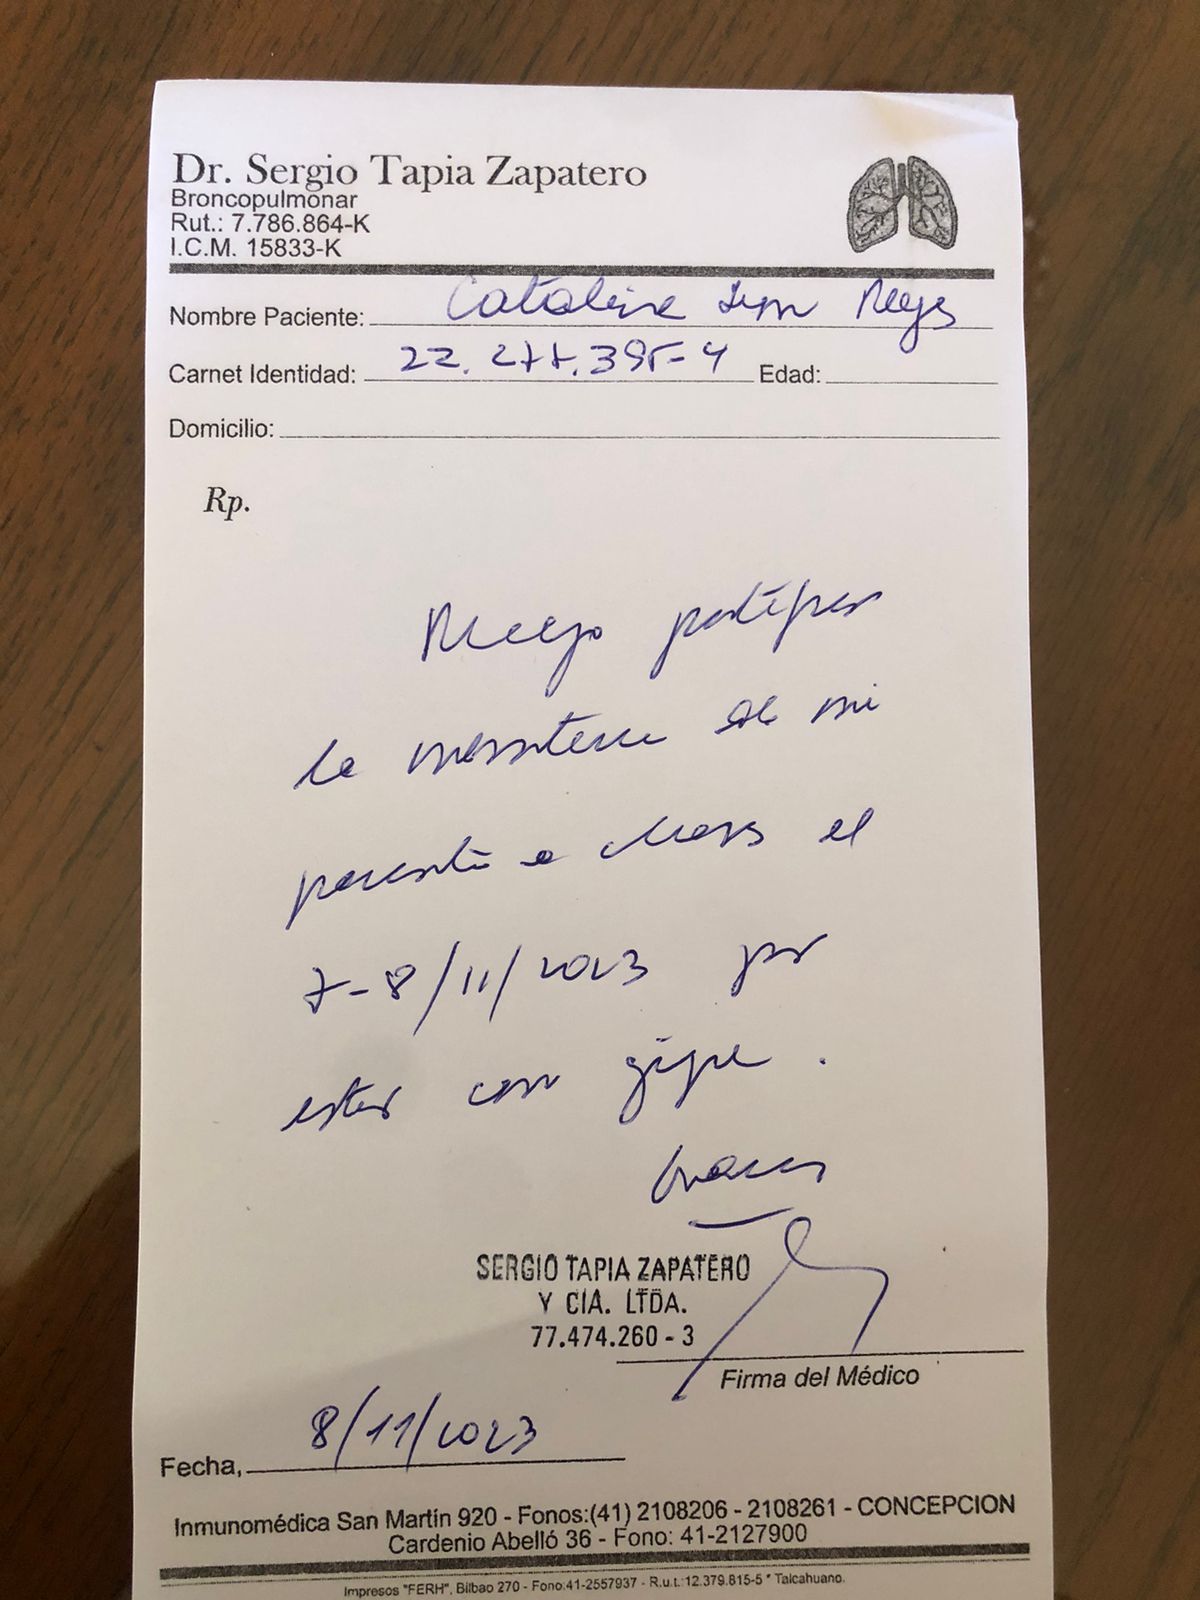 Dr. Sergio Tapia Zapatero
Broncopulmonar
Rut.: 7.786.864-K
I.C.M. 15833-K
Nombre Paciente: Catalina Reyes
Carnet Identidad: 22.277.395-4 Edad:
Domicilio:
Rp.
Ruego justificar
la inasistencia de mi
paciente a clases el
7-8/11/2023 por
estar con gripe.
Gracias
SERGIO TAPIA ZAPATERO
Y CIA. LTDA.
77.474.260-3
Firma del Médico
Fecha, 8/11/2023
Inmunomédica San Martín 920 - Fonos:(41) 2108206 - 2108261 - CONCEPCION
Cardenio Abelló 36 - Fono: 41-2127900
Impresos "FERH", Bilbao 270 - Fono:41-2557937 - R.u.t.:12.379.815-5 * Talcahuano.